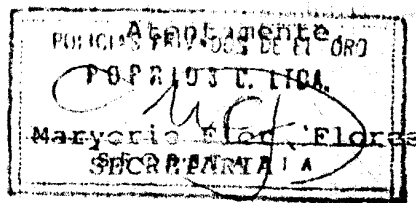 Atentamente,
POLICIAS PRIVADOS DE EL ORO
POPRIOS C. LTDA.
Maryorie Flores
SECRETARIA